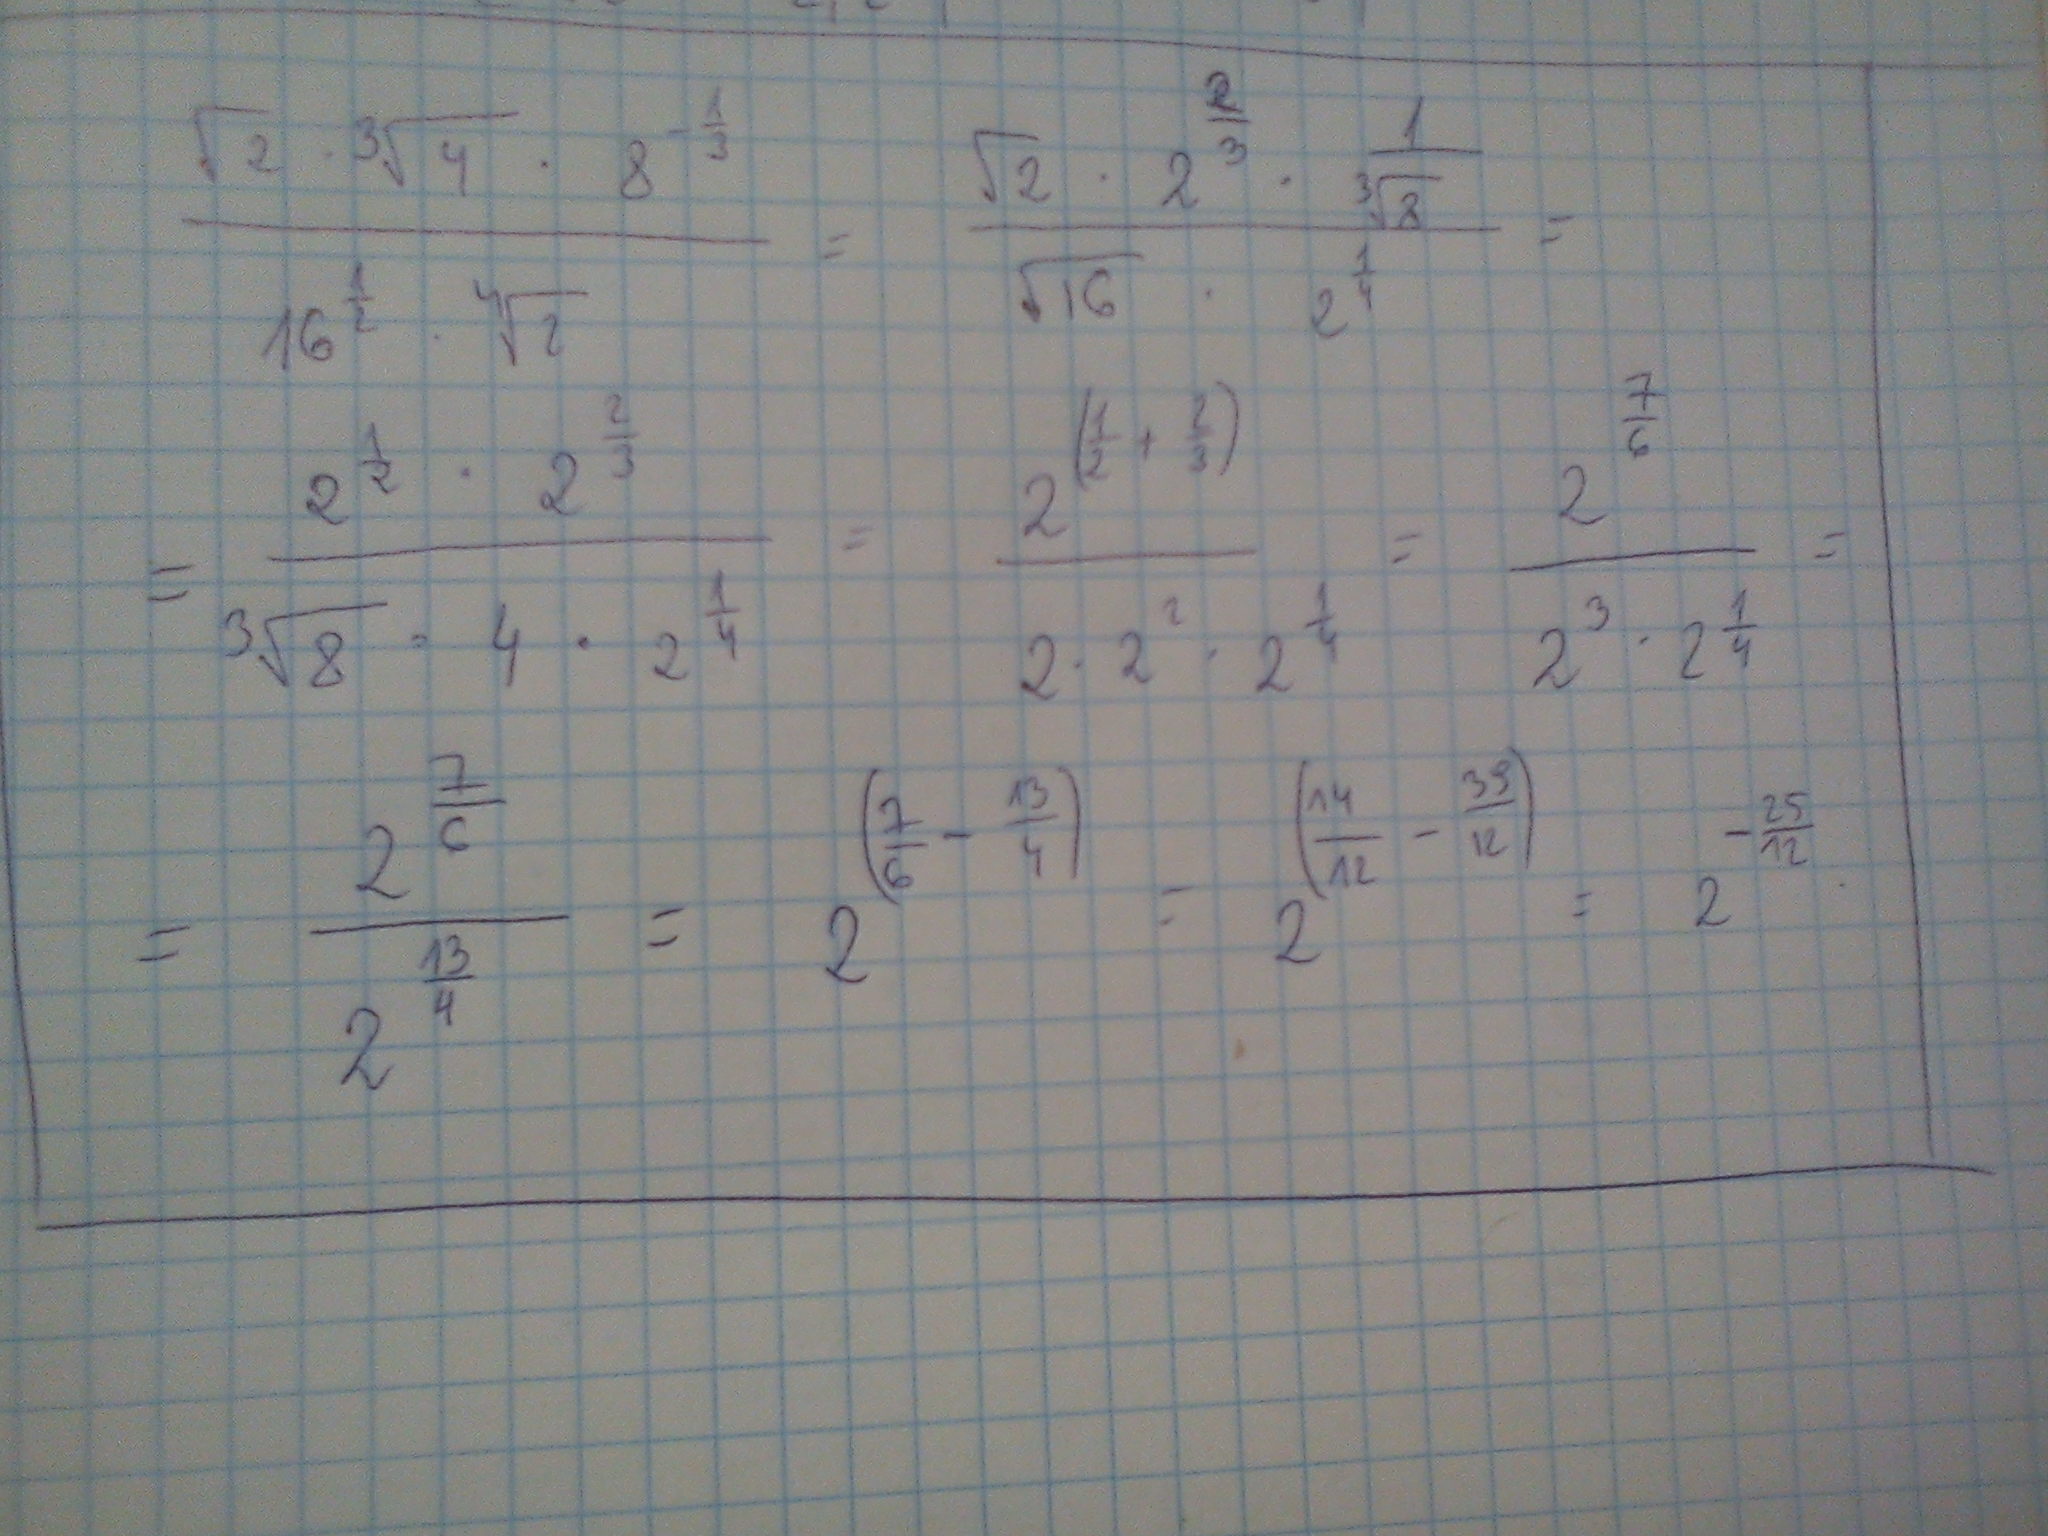 \frac{\sqrt{2} \cdot \sqrt[3]{4} \cdot 8^{-\frac{1}{3}}}{16^{\frac{1}{2}} \cdot \sqrt[4]{2}} = \frac{\sqrt{2} \cdot 2^{\frac{2}{3}} \cdot \frac{1}{\sqrt[3]{8}}}{\sqrt{16} \cdot 2^{\frac{1}{4}}} =
= \frac{2^{\frac{1}{2}} \cdot 2^{\frac{2}{3}}}{\sqrt[3]{8} \cdot 4 \cdot 2^{\frac{1}{4}}} = \frac{2^{(\frac{1}{2} + \frac{2}{3})}}{2 \cdot 2^2 \cdot 2^{\frac{1}{4}}} = \frac{2^{\frac{7}{6}}}{2^3 \cdot 2^{\frac{1}{4}}} =
= \frac{2^{\frac{7}{6}}}{2^{\frac{13}{4}}} = 2^{(\frac{7}{6} - \frac{13}{4})} = 2^{(\frac{14}{12} - \frac{39}{12})} = 2^{-\frac{25}{12}}